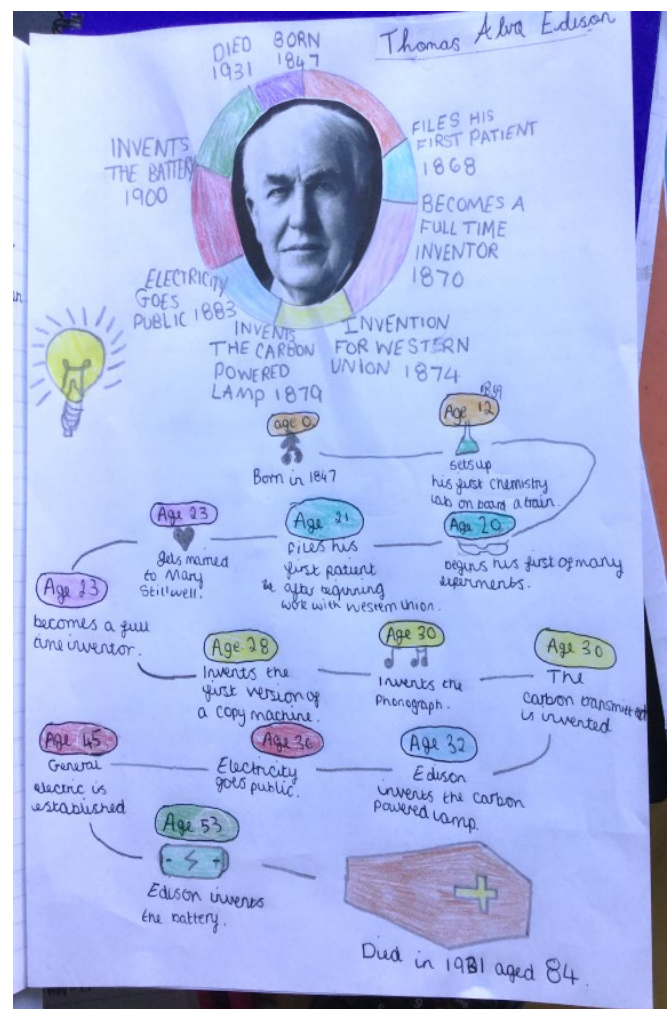 Thomas Alva Edison
DIED
1931
BORN
1847
FILES HIS
FIRST PATIENT
1868
BECOMES A
FULL TIME
INVENTOR
1870
INVENTION
FOR WESTERN
UNION 1874
INVENTS
THE CARBON
POWERED
LAMP 1879
ELECTRICITY
GOES
PUBLIC 1883
INVENTS
THE BATTERY
1900
age 0
Born in 1847
Age 12
sets up
his first chemistry
lab on board a train.
Age 20
begins his first of many
experments.
Age 21
files his
first patient
after beginning
work with western union.
Age 23
gets married
to Mary
Stillwell.
Age 23
becomes a full
time inventor.
Age 28
Invents the
first version of
a copy machine.
Age 30
Invents the
Phonograph.
Age 30
The
carbon transmitter
is invented
Age 32
Edison
invents the carbon
powered lamp.
Age 36
Electricity
goes public.
Age 45
General
electric is
established
Age 53
Edison invents
the battery.
Died in 1931 aged 84.